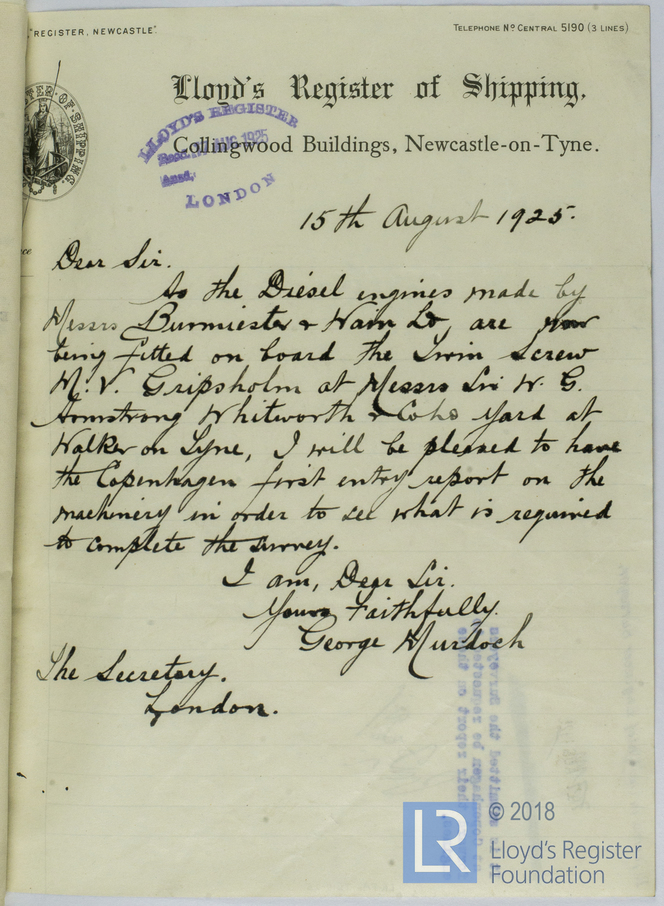 "REGISTER, NEWCASTLE".
TELEPHONE No CENTRAL 5190 (3 LINES)
Lloyd's Register of Shipping,
Collingwood Buildings, Newcastle-on-Tyne.
LLOYD'S REGISTER
Recd. AUG 1925
Ansd.
LONDON
15th August 1925.
Dear Sir.
As the Diesel engines made by
Messrs Burmiester & Wain Ld, are now
being fitted on board the Twin Screw
M.V. Gripsholm at Messrs Sir W. G.
Armstrong Whitworth & Cohs Yard at
Walker on Tyne, I will be pleased to have
the Copenhagen first entry report on the
machinery in order to see what is required
to complete the survey.
I am, Dear Sir.
Yours Faithfully.
George Murdoch
The Secretary.
London.
LR
© 2018
Lloyd's Register
Foundation